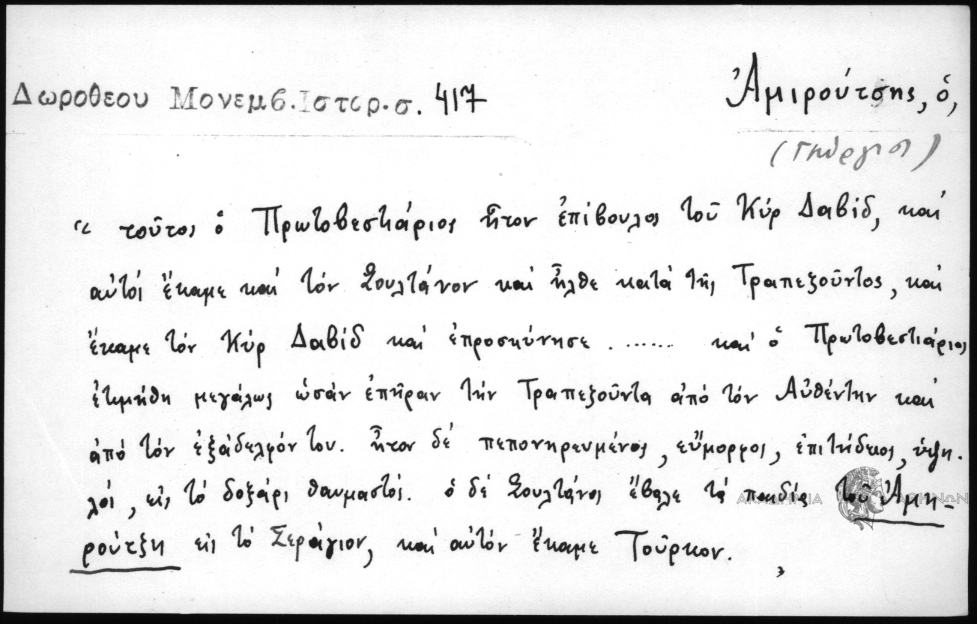 Δωροθεου Μονεμβ. Ιστορ. σ. 417
Ἀμιρούτσης, ὁ,
(Γεώργιος)
“ τοῦτος ὁ Πρωτοβεστιάριος ἦτον ἐπίβουλος τοῦ Κύρ Δαβίδ, καί
αὐτός ἔκαμε καί τόν Σουλτάνον καί ἦλθε κατά τῆς Τραπεζοῦντος, καί
ἔκαμε τόν Κύρ Δαβίδ καί ἐπροσκύνησε ........ καί ὁ Πρωτοβεστιάριος
ἐτιμήθη μεγάλως ὡσάν ἐπῆραν τήν Τραπεζοῦντα ἀπό τόν Αὐθέντην καί
ἀπό τόν ἐξάδελφόν του. ἦτον δέ πεπονηρευμένος, εὔμορφος, ἐπιτήδειος, ὑψη-
λός, εἰς τό δοξάρι θαυμαστός. ὁ δέ Σουλτάνος ἔβαλε τά παιδία τοῦ Ἀμη-
ρούτζη εἰς τό Σεράγιον, καί αὐτόν ἔκαμε Τοῦρκον. ”
ΑΚΑΔΗΜΙΑ ΑΘΗΝΩΝ